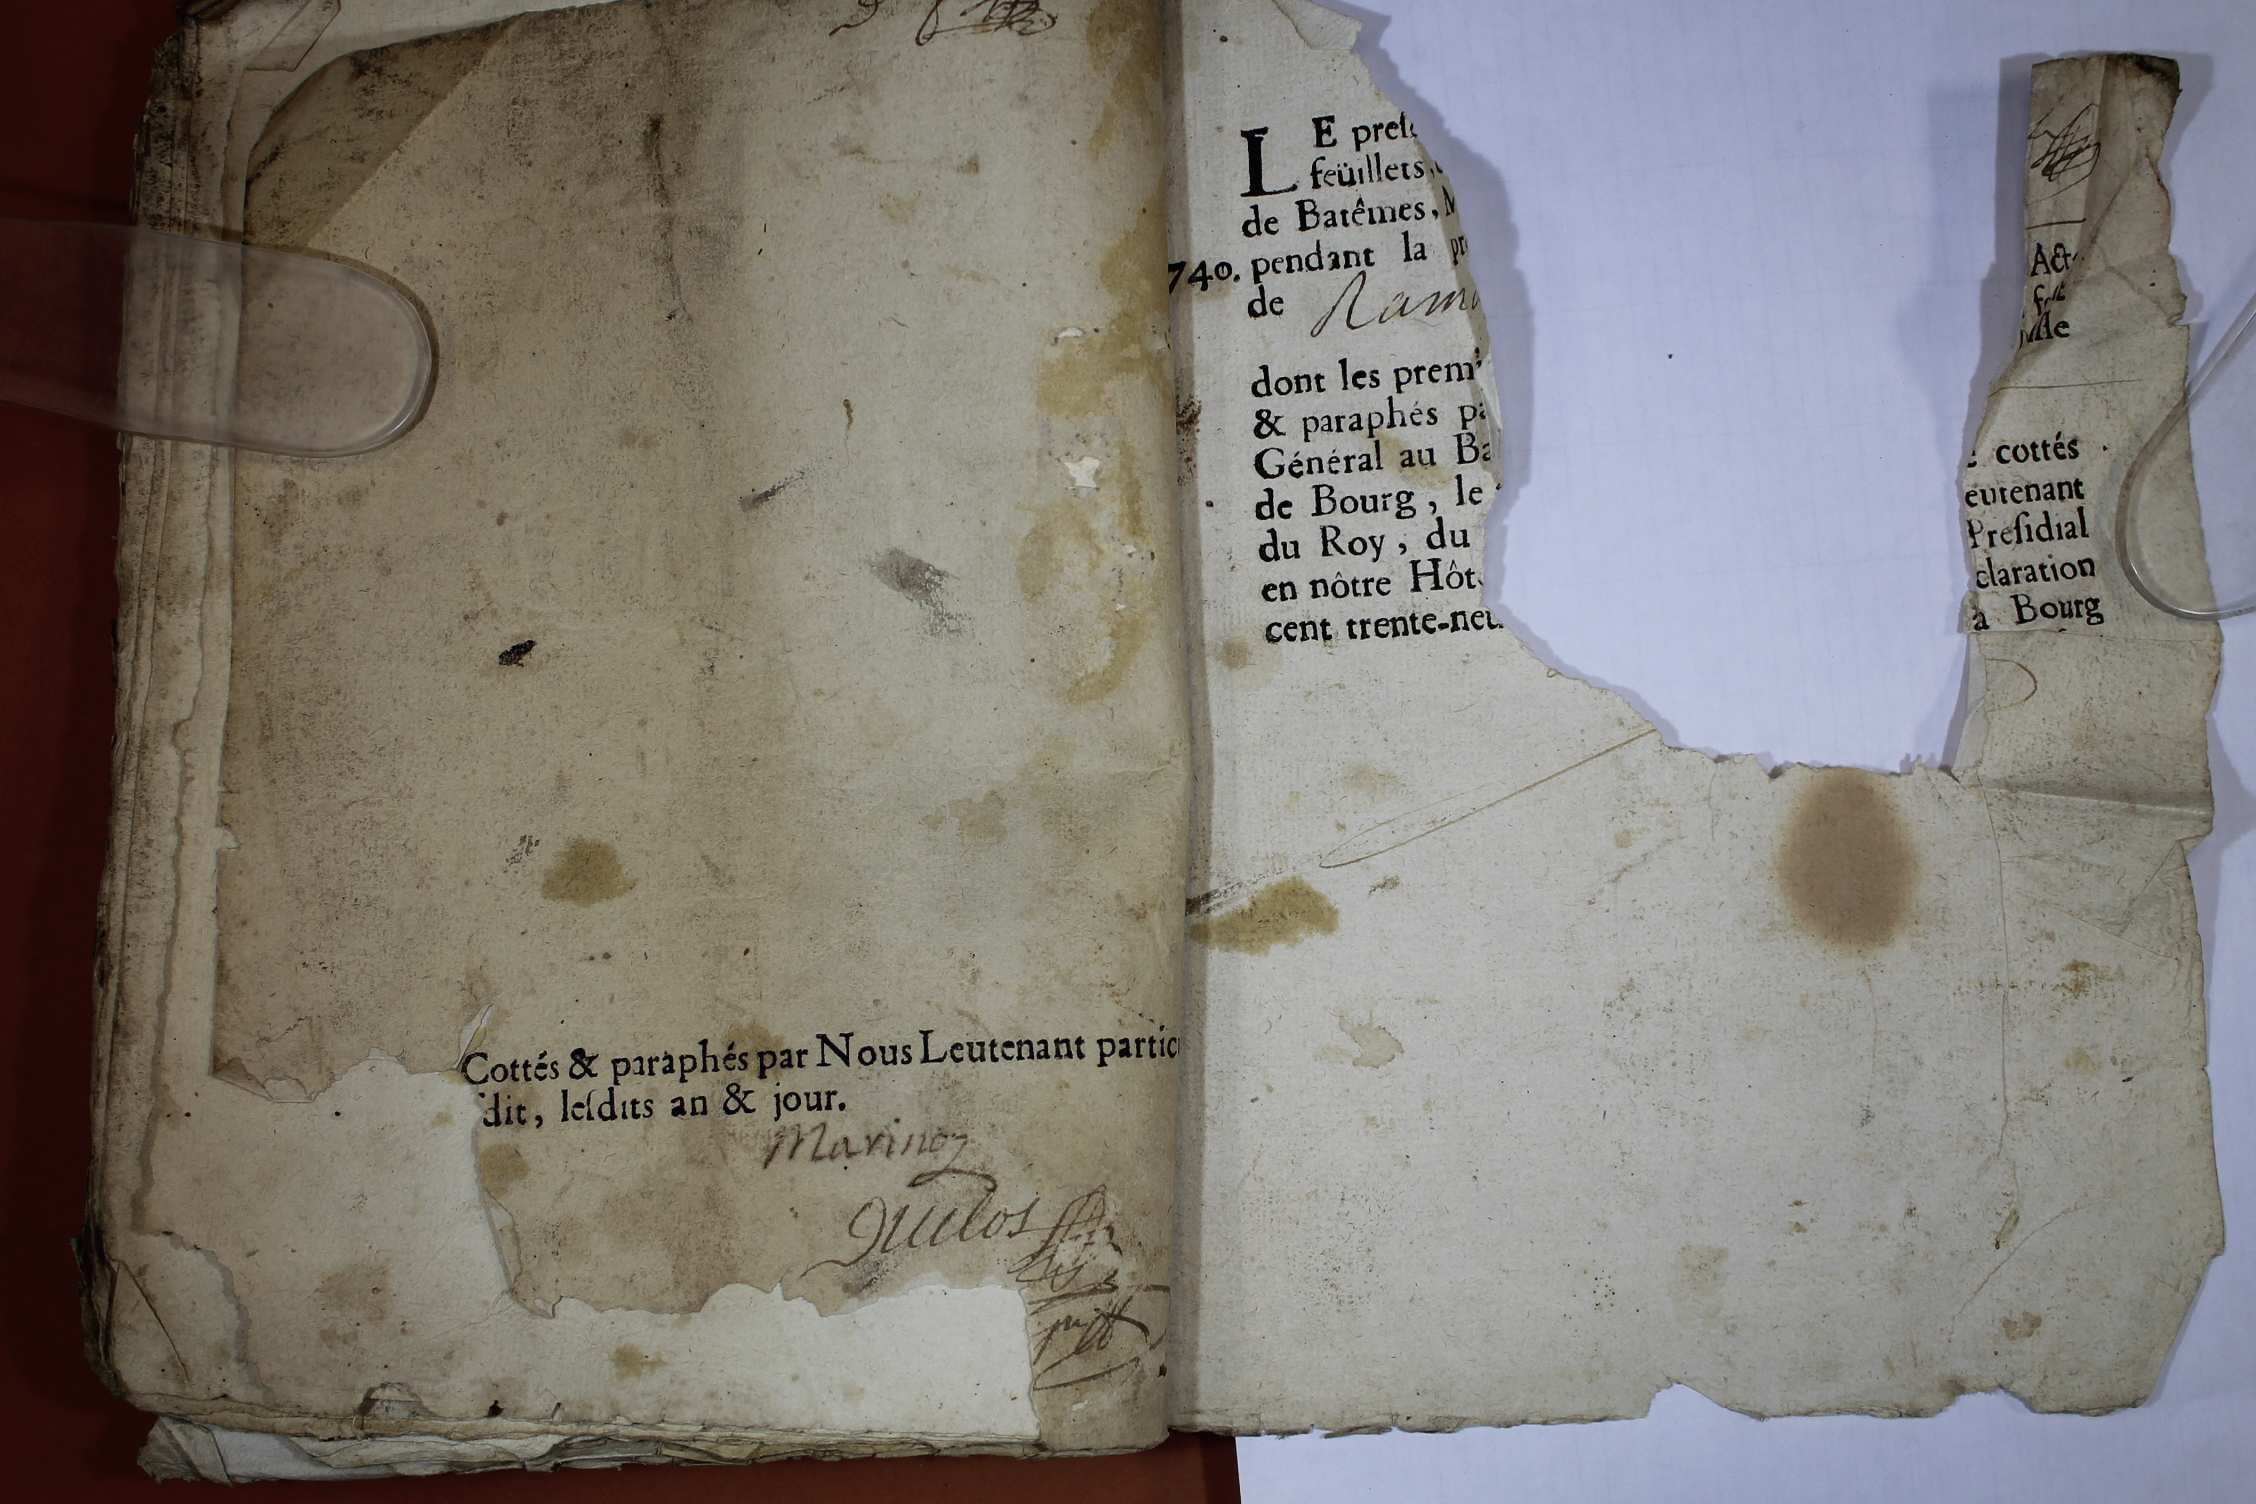 Cottés & paraphés par Nous Leutenant partic
dit, leſdits an & jour.
Marinoz
LE preſ
feüillets,
de Batêmes, M
740. pendant la pr
de Ram
dont les prem
& paraphés pa
Général au Ba
de Bourg, le
du Roy, du
en nôtre Hôt
cent trente-neu
Act
lle
cottés
eutenant
Preſidial
claration
à Bourg